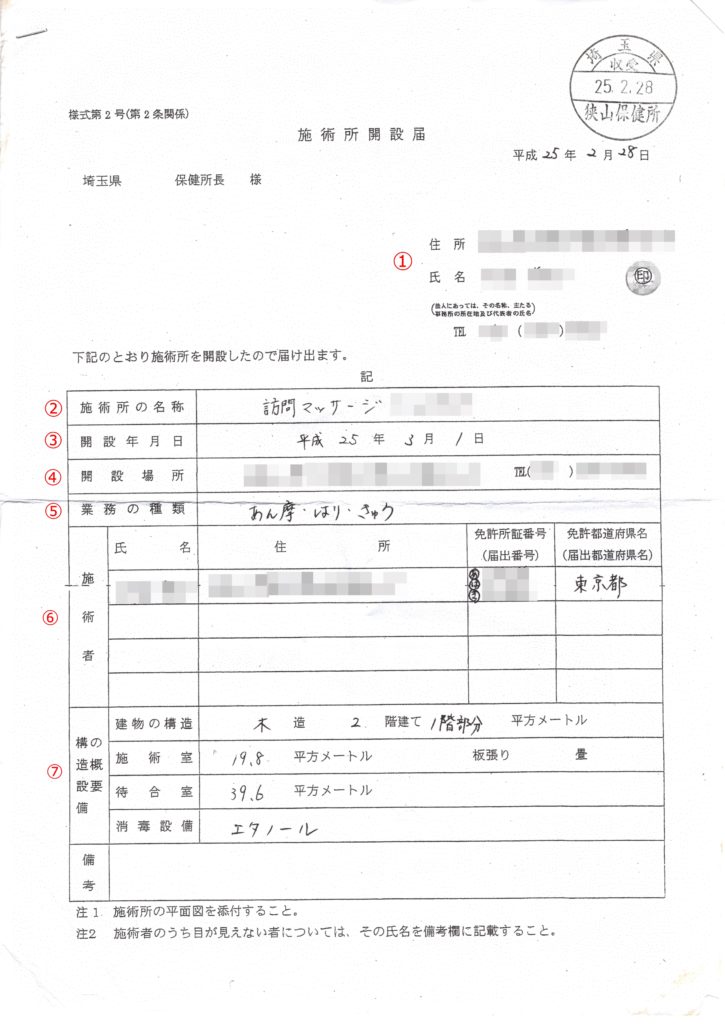 埼玉県
収受
25.2.28
狭山保健所
様式第2号(第2条関係)
施術所開設届
平成25年2月28日
埼玉県 保健所長 様
① 住所
氏名 ㊞
(法人にあっては、その名称、主たる
事務所の所在地及び代表者の氏名)
℡ ( )
下記のとおり施術所を開設したので届け出ます。
記
② 施術所の名称 訪問マッサージ
③ 開設年月日 平成25年3月1日
④ 開設場所 ℡( )
⑤ 業務の種類 あん摩・はり・きゅう
⑥ 施術者
氏名 住所 免許所証番号(届出番号) 免許都道府県名(届出都道府県名)
東京都
⑦ 構造設備の概要
建物の構造 木造 2階建て 1階部分 平方メートル
施術室 19.8 平方メートル 板張り 畳
待合室 39.6 平方メートル
消毒設備 エタノール
備考
注1 施術所の平面図を添付すること。
注2 施術者のうち目が見えない者については、その氏名を備考欄に記載すること。